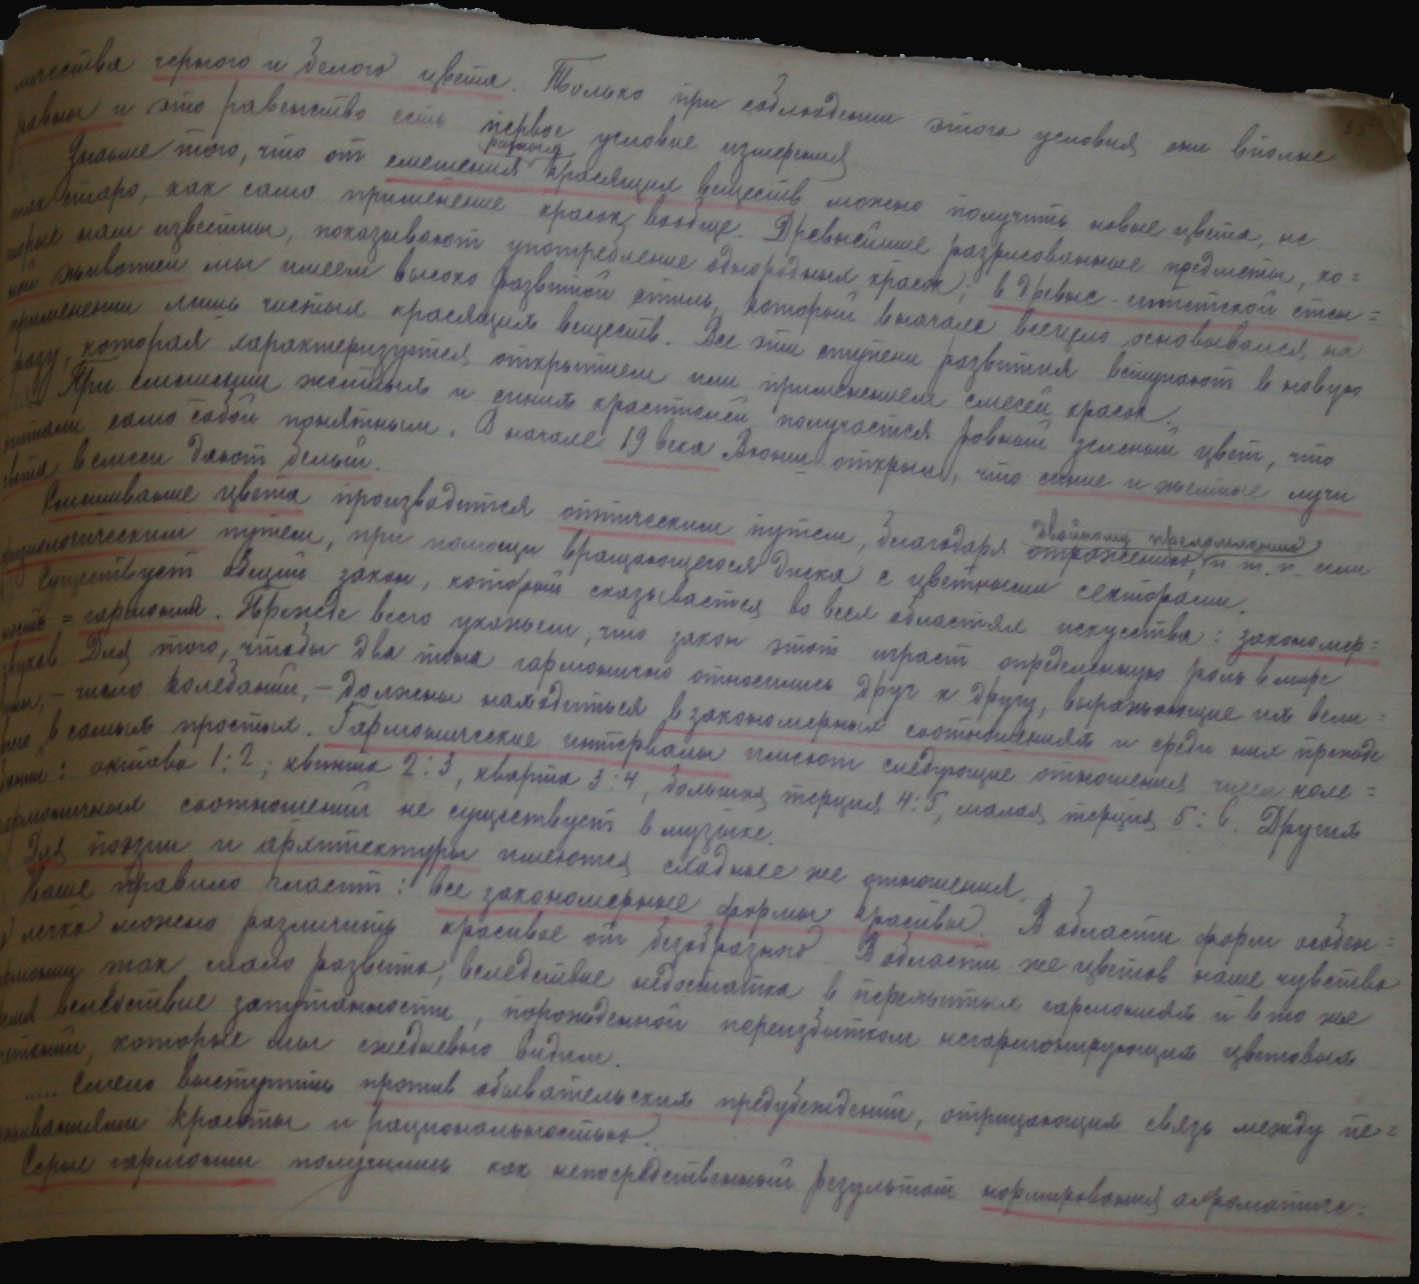 чества черного и белого цвета. Только при соблюдении этого условия они вполне
равны и это равенство есть первое условие измерения
Знание того, что от смешения разных красящих веществ можно получить новые цвета, не
так старо, как само применение красок вообще. Древнейшие разрисованные предметы, ко=
торые нам известны, показывают употребление однородных красок; в древне-египетской стен=
ной живописи мы имеем высоко развитой стиль, который вначале всецело основывался на
применении лишь чистых красящих веществ. Все эти ступени развития вступают в новую
фазу, которая характеризуется открытием или применением смесей красок.
При смешении желтых и синих красителей получается ровный зеленый цвет, что
считали само собой понятным. В начале 19 века открыли, что синие и желтые лучи
света в смеси дают белый.
Смешивание цвета производится оптическим путем, благодаря двойному преломлению отражению, и т. п. или
физиологическим путем, при помощи вращающегося диска с цветными секторами.
Существует общий закон, который сказывается во всех областях искусства: закономер=
ность = гармония. Прежде всего укажем, что закон этот играет определенную роль в мире
звуков. Для того, чтобы два тона гармонично относились друг к другу, выражающие их вели=
чины, – число колебаний, – должны находиться в закономерных соотношениях и среди них прежде
всего в самых простых. Гармонические интервалы имеют следующие отношения числа коле=
баний: октава 1:2; квинта 2:3, кварта 3:4, большая терция 4:5, малая терция 5:6. Других
гармоничных соотношений не существует в музыке.
Для поэзии и архитектуры имеются сходные же отношения.
Наше правило гласит: все закономерные формы красивы. В области форм особен=
но легко можно различить красивое от безобразного. В области же цветов наше чувство
гармонии так мало развито, вследствие недостатка в пережитых гармониях и в то же
время вследствие запутанности, порожденной переизбытком негармонирующих цветовых
сочетаний, которые мы ежедневно видим.
.... Смело выступить против обывательских предубеждений, отрицающих связь между пе=
реживаниями красоты и рациональностью.
Серые гармонии получились как непосредственный результат нормирования ахроматиче=